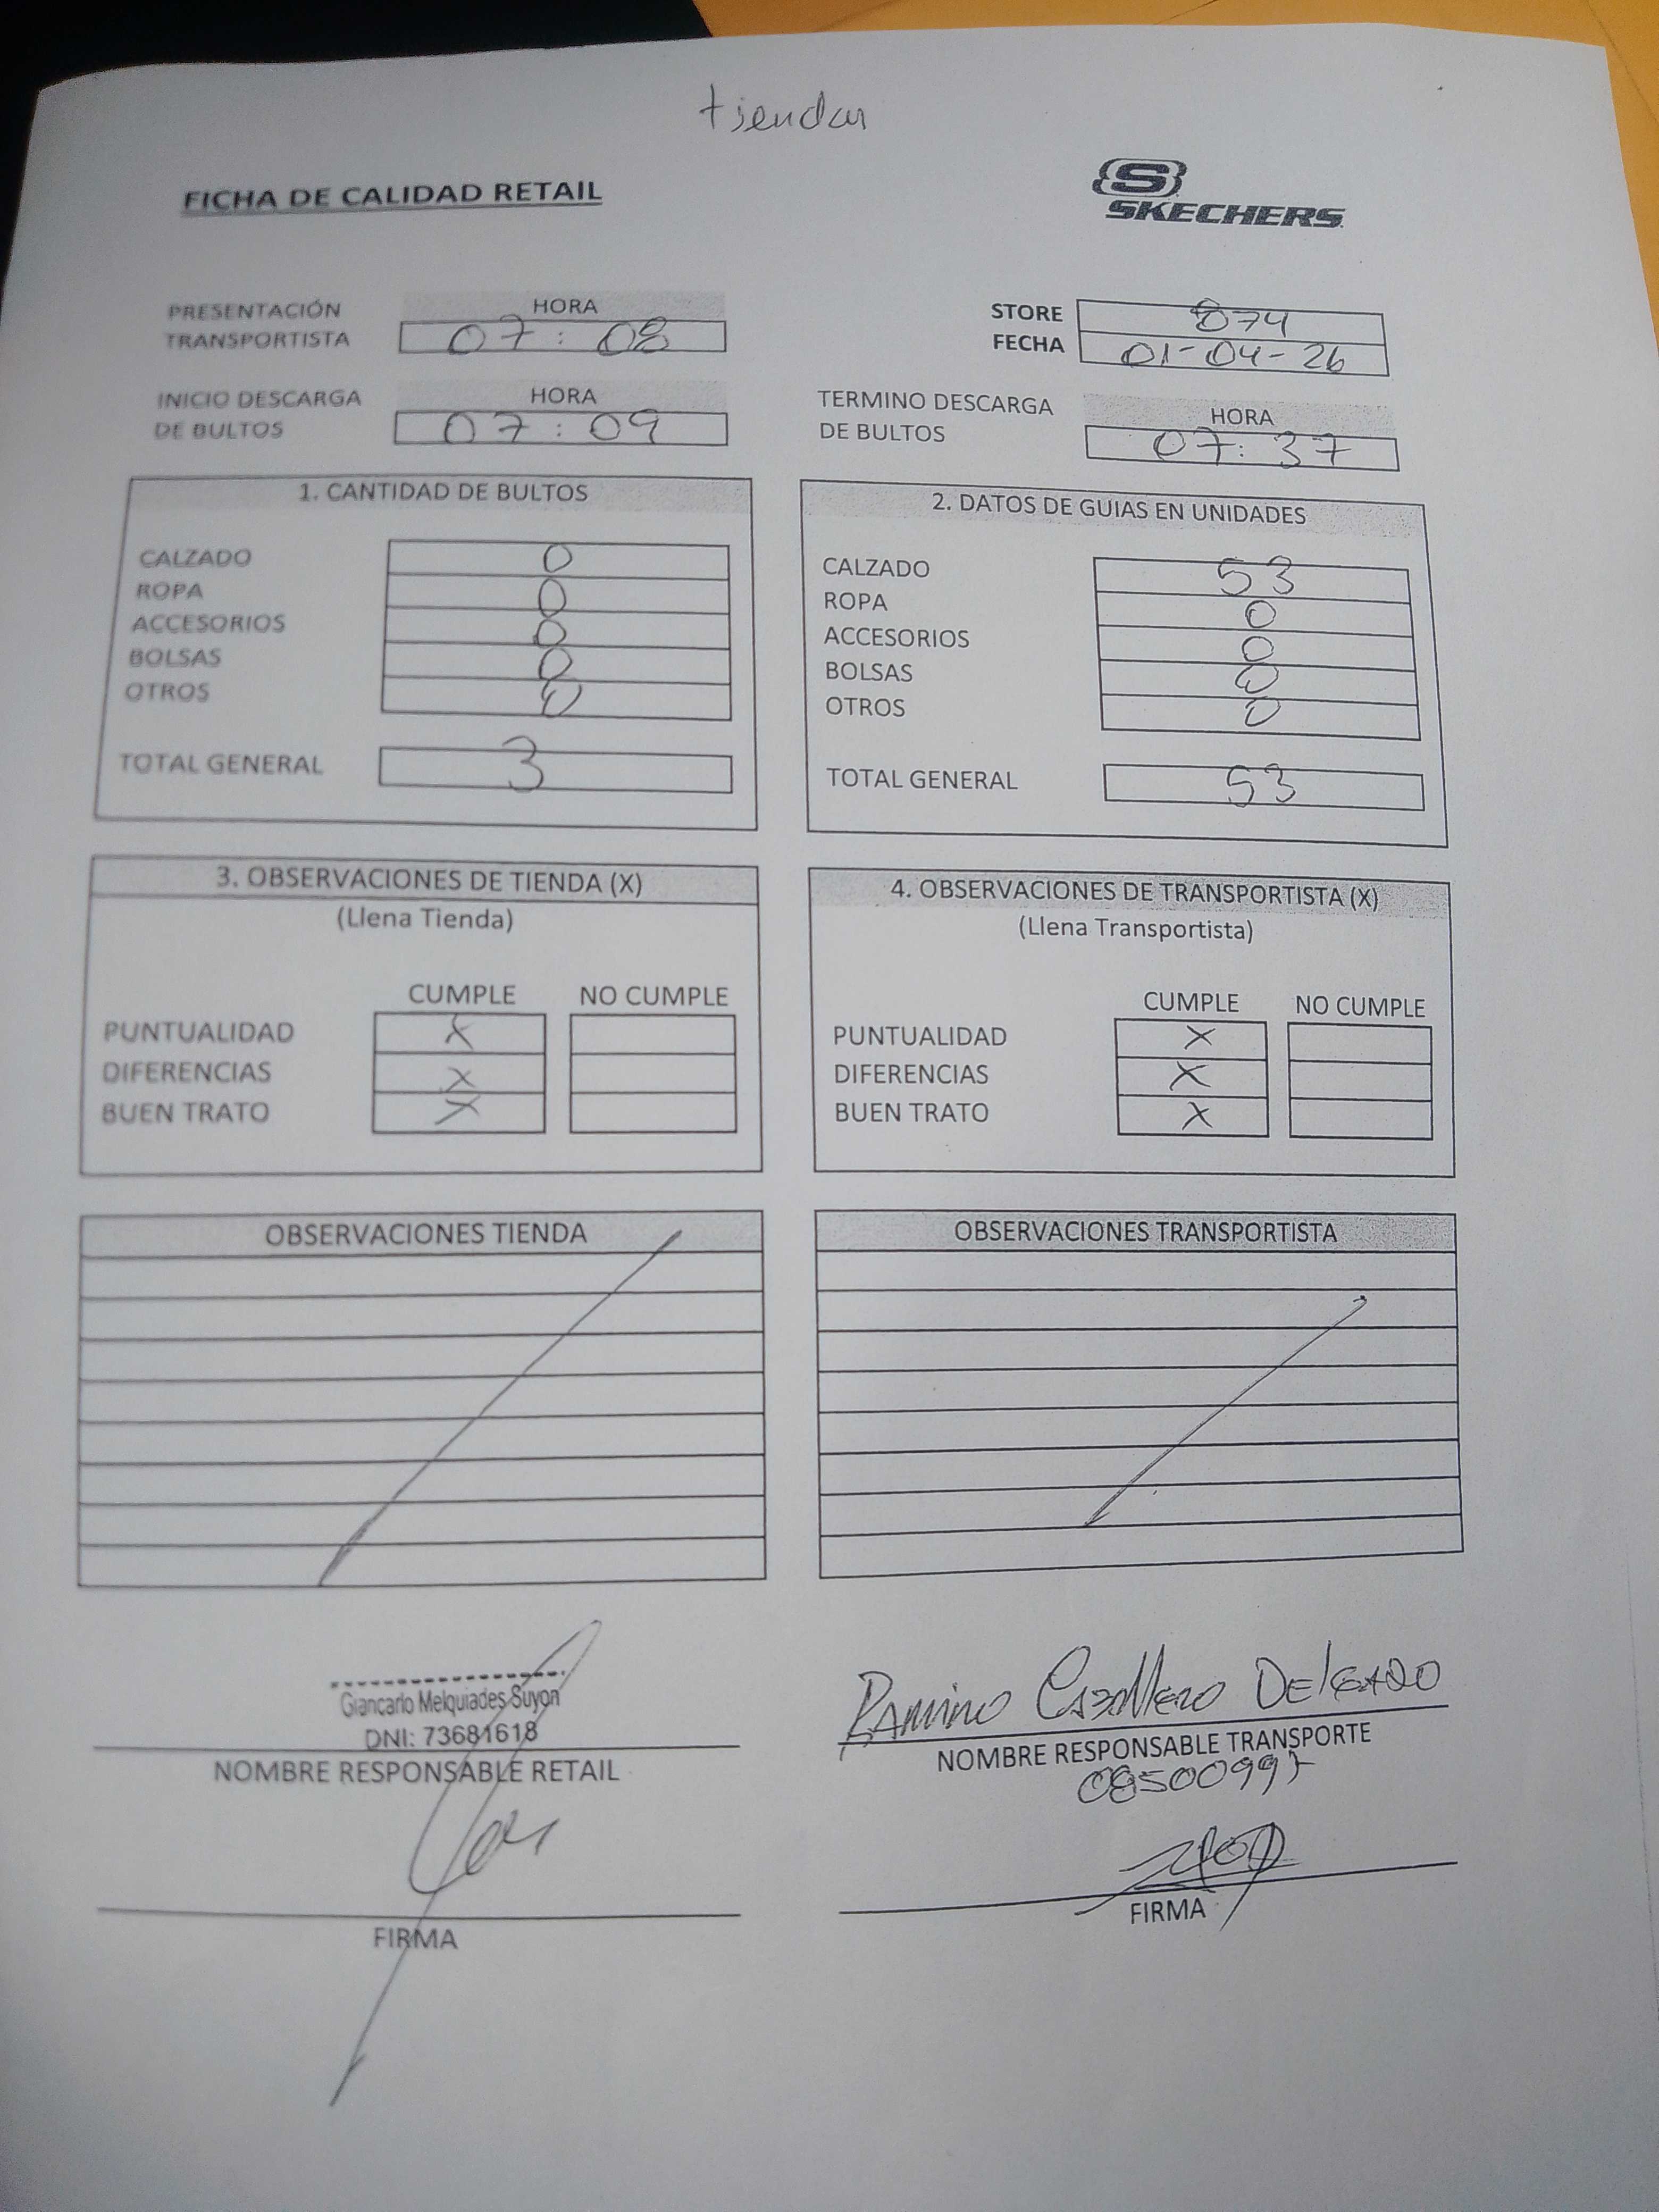 tiendas
FICHA DE CALIDAD RETAIL
SKECHERS
PRESENTACIÓN TRANSPORTISTA
HORA
07:08
STORE 874
FECHA 01-04-26
INICIO DESCARGA DE BULTOS
HORA
07:09
TERMINO DESCARGA DE BULTOS
HORA
07:37
1. CANTIDAD DE BULTOS
CALZADO 0
ROPA 0
ACCESORIOS 0
BOLSAS 0
OTROS 0
TOTAL GENERAL 3
2. DATOS DE GUIAS EN UNIDADES
CALZADO 53
ROPA 0
ACCESORIOS 0
BOLSAS 0
OTROS 0
TOTAL GENERAL 53
3. OBSERVACIONES DE TIENDA (X)
(Llena Tienda)
CUMPLE NO CUMPLE
PUNTUALIDAD X
DIFERENCIAS X
BUEN TRATO X
4. OBSERVACIONES DE TRANSPORTISTA (X)
(Llena Transportista)
CUMPLE NO CUMPLE
PUNTUALIDAD X
DIFERENCIAS X
BUEN TRATO X
OBSERVACIONES TIENDA
OBSERVACIONES TRANSPORTISTA
Giancarlo Melquiades Suyon
DNI: 73681618
NOMBRE RESPONSABLE RETAIL
FIRMA
Ramiro Caballero DELGADO
NOMBRE RESPONSABLE TRANSPORTE
08500997
FIRMA